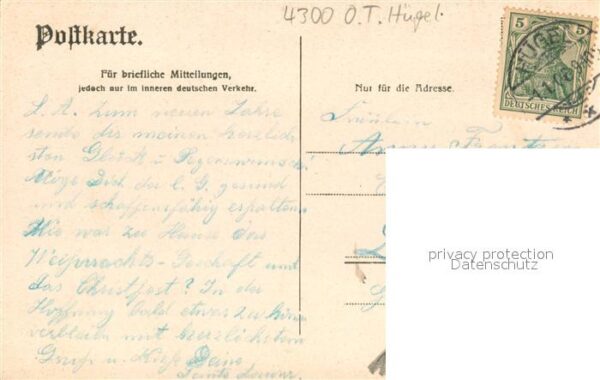 4300 O.T. Hügel
Postkarte.
Für briefliche Mitteilungen,
jedoch nur im inneren deutschen Verkehr.
Nur für die Adresse.
5 5
DEUTSCHES REICH
HÜGEL
L. A. Zum neuen Jahre
sende dir meinen herzlich-
sten Glück u Segenswunsch!
Möge Dich der l. G. gesund
und schaffensfähig erhalten.
Wie war zu Hause das
Weihnachts-Geschäft und
das Christfest? In der
Hoffnung bald etwas zu hören
verbleibe mit herzlichstem
Gruß u. Kuß Deine
Fräulein
Anna
privacy protection
Datenschutz